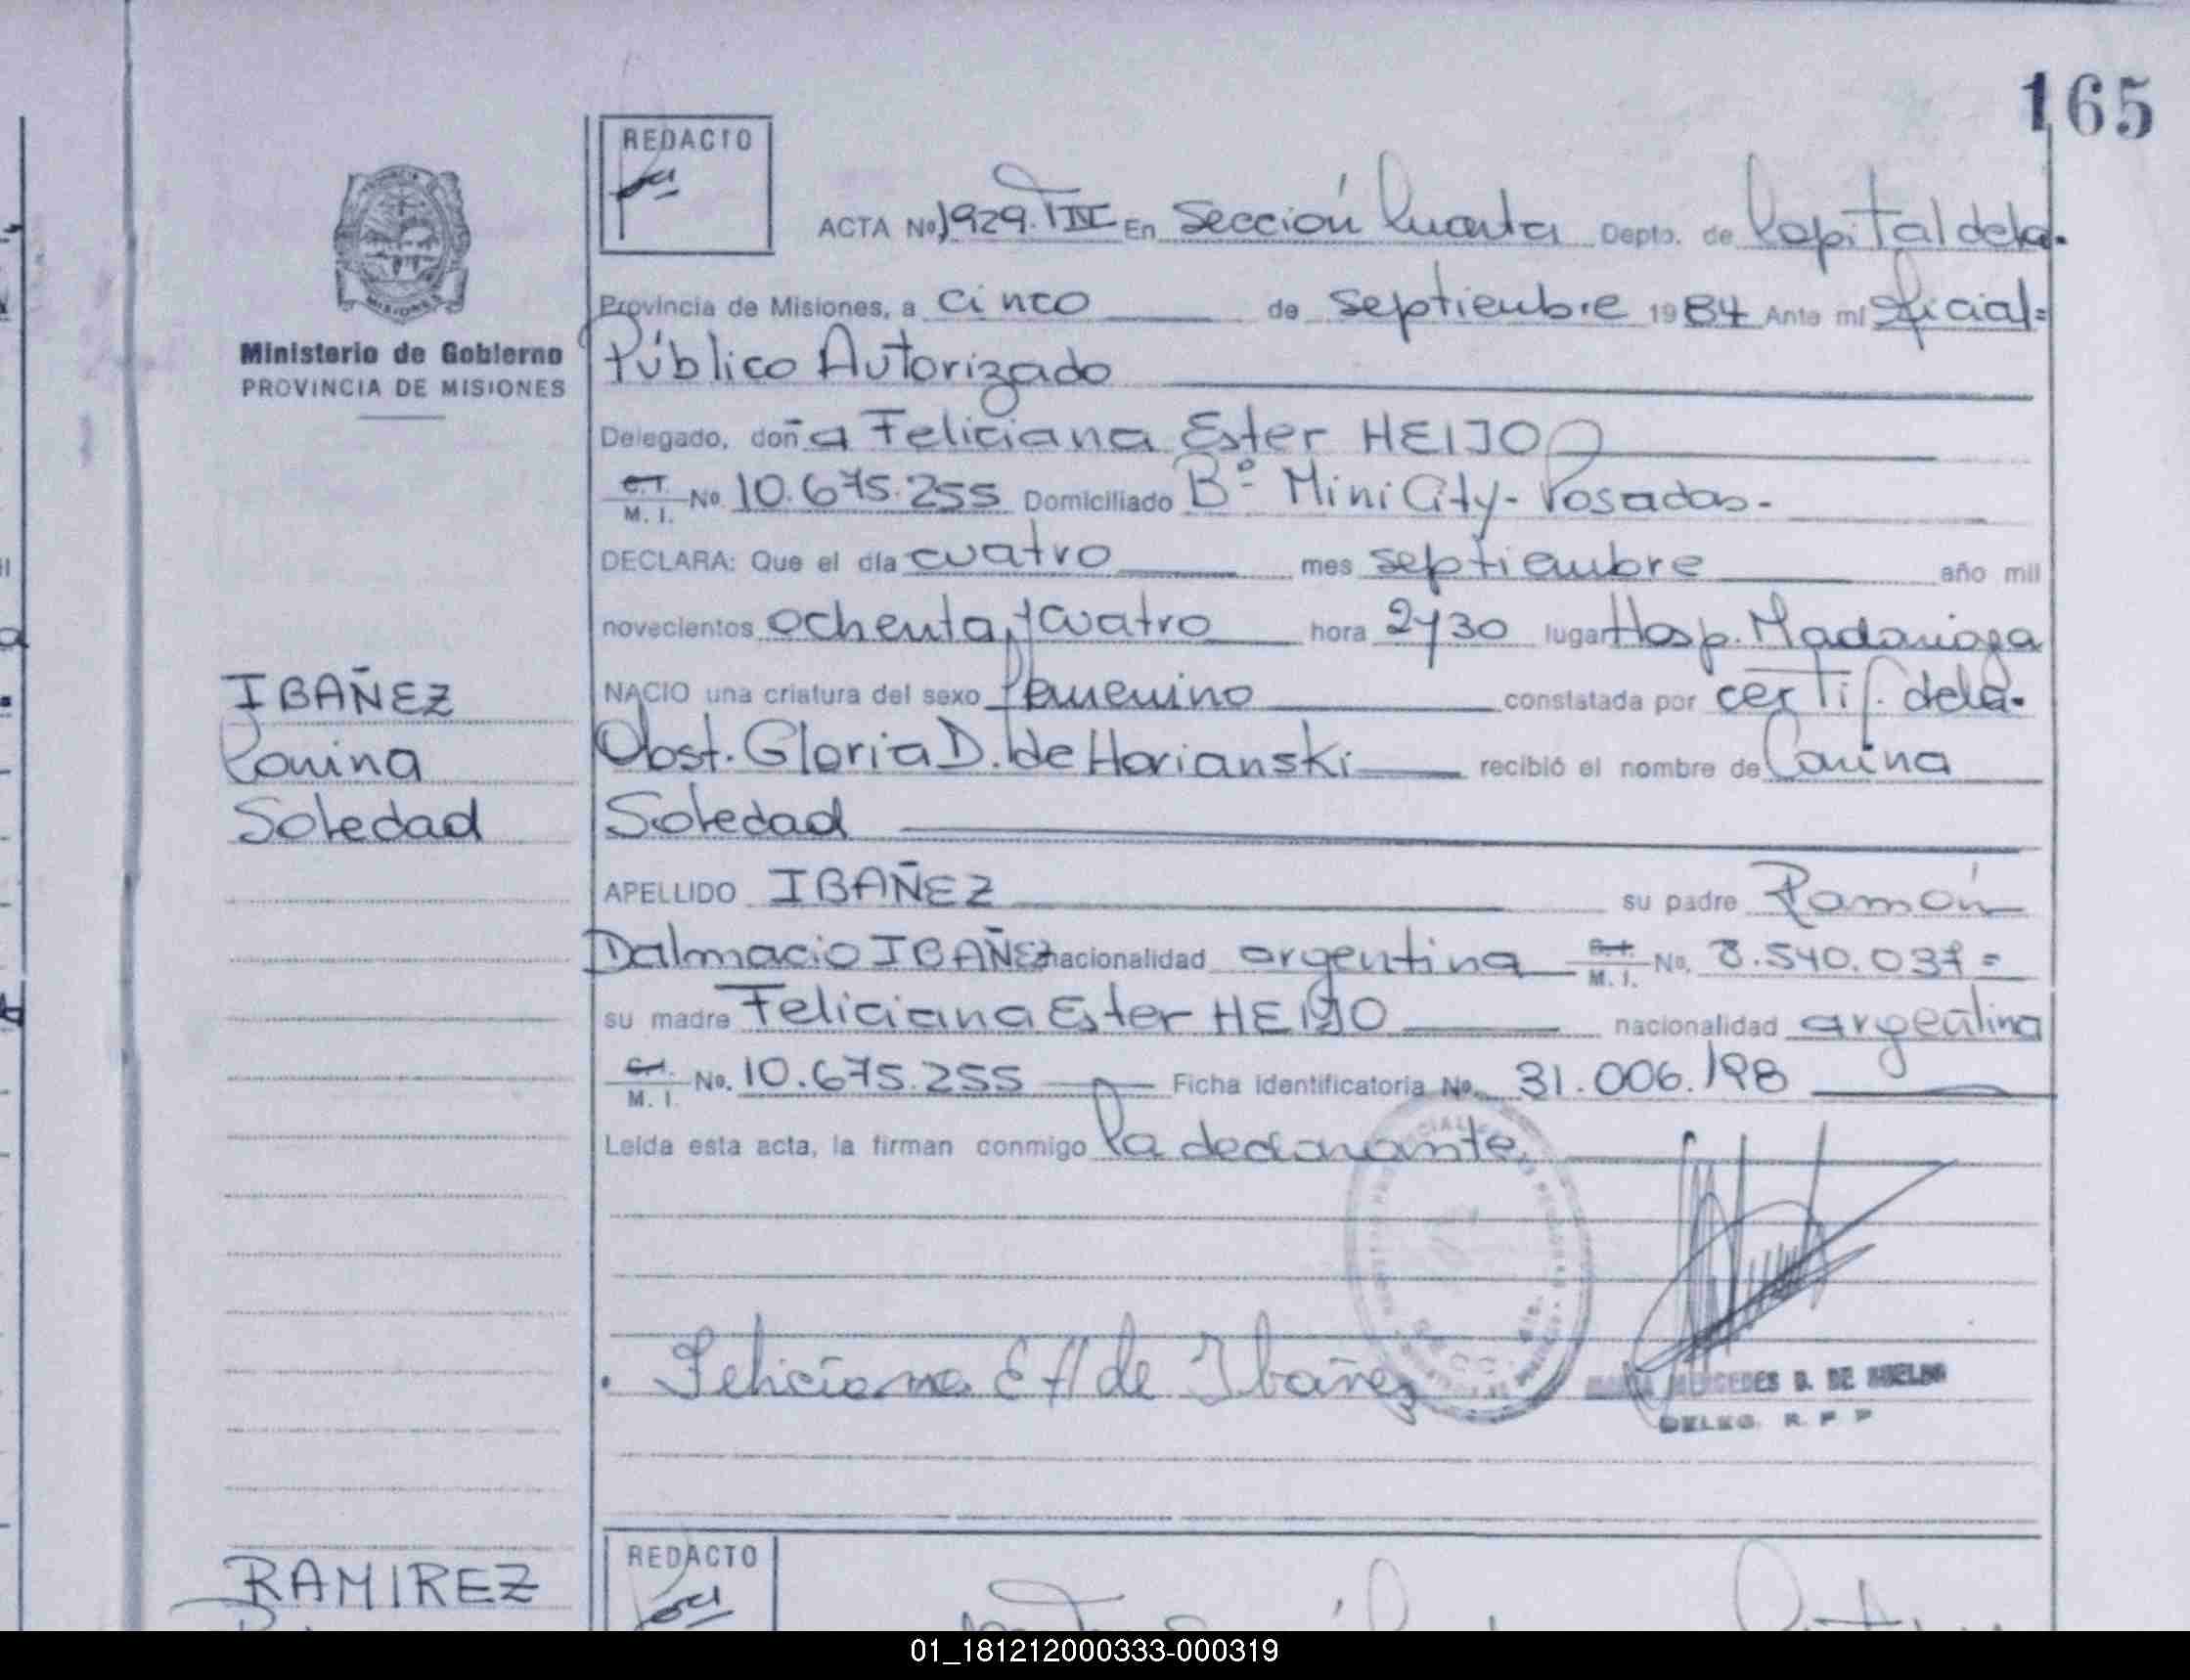 165
REDACTO
ACTA Nº 1929. T IV En Sección Cuarta Depto. de Capital de la
Provincia de Misiones, a cinco de septiembre 1984 Ante mí Oficial
Público Autorizado
Ministerio de Gobierno
PROVINCIA DE MISIONES
Delegado, doña Feliciana Ester HEIJO
C.I. M. I. Nº 10.675.255 Domiciliado Bº Mini City - Posadas.-
DECLARA: Que el día cuatro mes septiembre año mil
novecientos ochenta y cuatro hora 2y30 lugar Hosp. Madariaga
IBAÑEZ
Carina
Soledad
NACIO una criatura del sexo femenino constatada por certif. de la
Obst. Gloria D. de Horianski recibió el nombre de Carina
Soledad
APELLIDO IBAÑEZ su padre Ramón
Dalmacio IBAÑEZ nacionalidad argentina C.I. M. I. No. 8.540.037=
su madre Feliciana Ester HEIJO nacionalidad argentina
C.I. M. I. No. 10.675.255 Ficha identificatoria No. 31.006.198
Leída esta acta, la firman conmigo la declarante.
Feliciana E H de Ibañez
MERCEDES B. DE
DELEG. R. P P
RAMIREZ
REDACTO
01_181212000333-000319